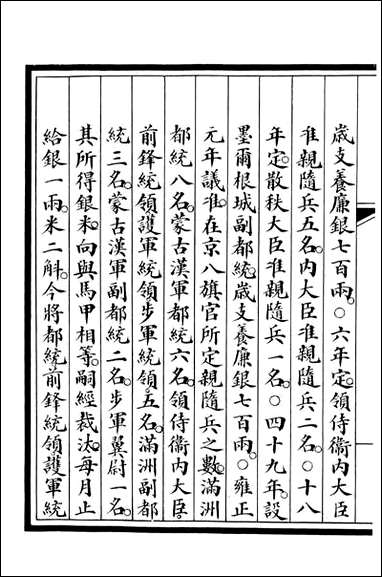 歲支養廉銀七百兩。○六年定。領侍衞內大臣
准親隨兵五名。內大臣准親隨兵二名。○十八
年定。散秩大臣准親隨兵一名。○四十九年。設
墨爾根城副都統。歲支養廉銀七百兩。○雍正
元年議准。在京八旗官所定親隨兵之數。滿洲
都統八名。蒙古漢軍都統六名。領侍衞內大臣。
前鋒統領護軍統領步軍統領。五名。滿洲副都
統三名。蒙古漢軍副都統二名。步軍翼尉一名。
其所得銀米。向與馬甲相等。嗣經裁汰。每月止
給銀一兩。米二斛。今將都統前鋒統領護軍統